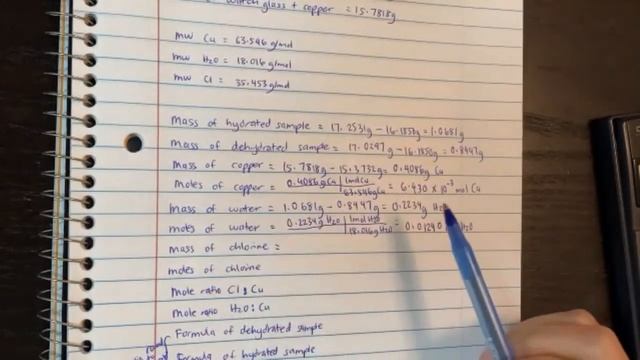 watch glass + copper = 15.7818g
mw Cu = 63.546 g/mol
mw H2O = 18.016 g/mol
mw Cl = 35.453 g/mol
Mass of hydrated sample = 17.2531g - 16.1850g = 1.0681g
Mass of dehydrated sample = 17.0297g - 16.1850g = 0.8447g
Mass of copper = 15.7818g - 15.3732g = 0.4086g Cu
Moles of copper = 0.4086g Cu | 1mol Cu / 63.546g Cu = 6.430 x 10⁻³ mol Cu
Mass of water = 1.0681g - 0.8447g = 0.2234g H2
moles of water = 0.2234g H2O | 1mol H2O / 18.016g H2O = 0.0124 H2O
Mass of chlorine =
moles of chlorine
Mole ratio Cl : Cu
Mole ratio H2O : Cu
Formula of dehydrated sample
Formula of hydrated sample